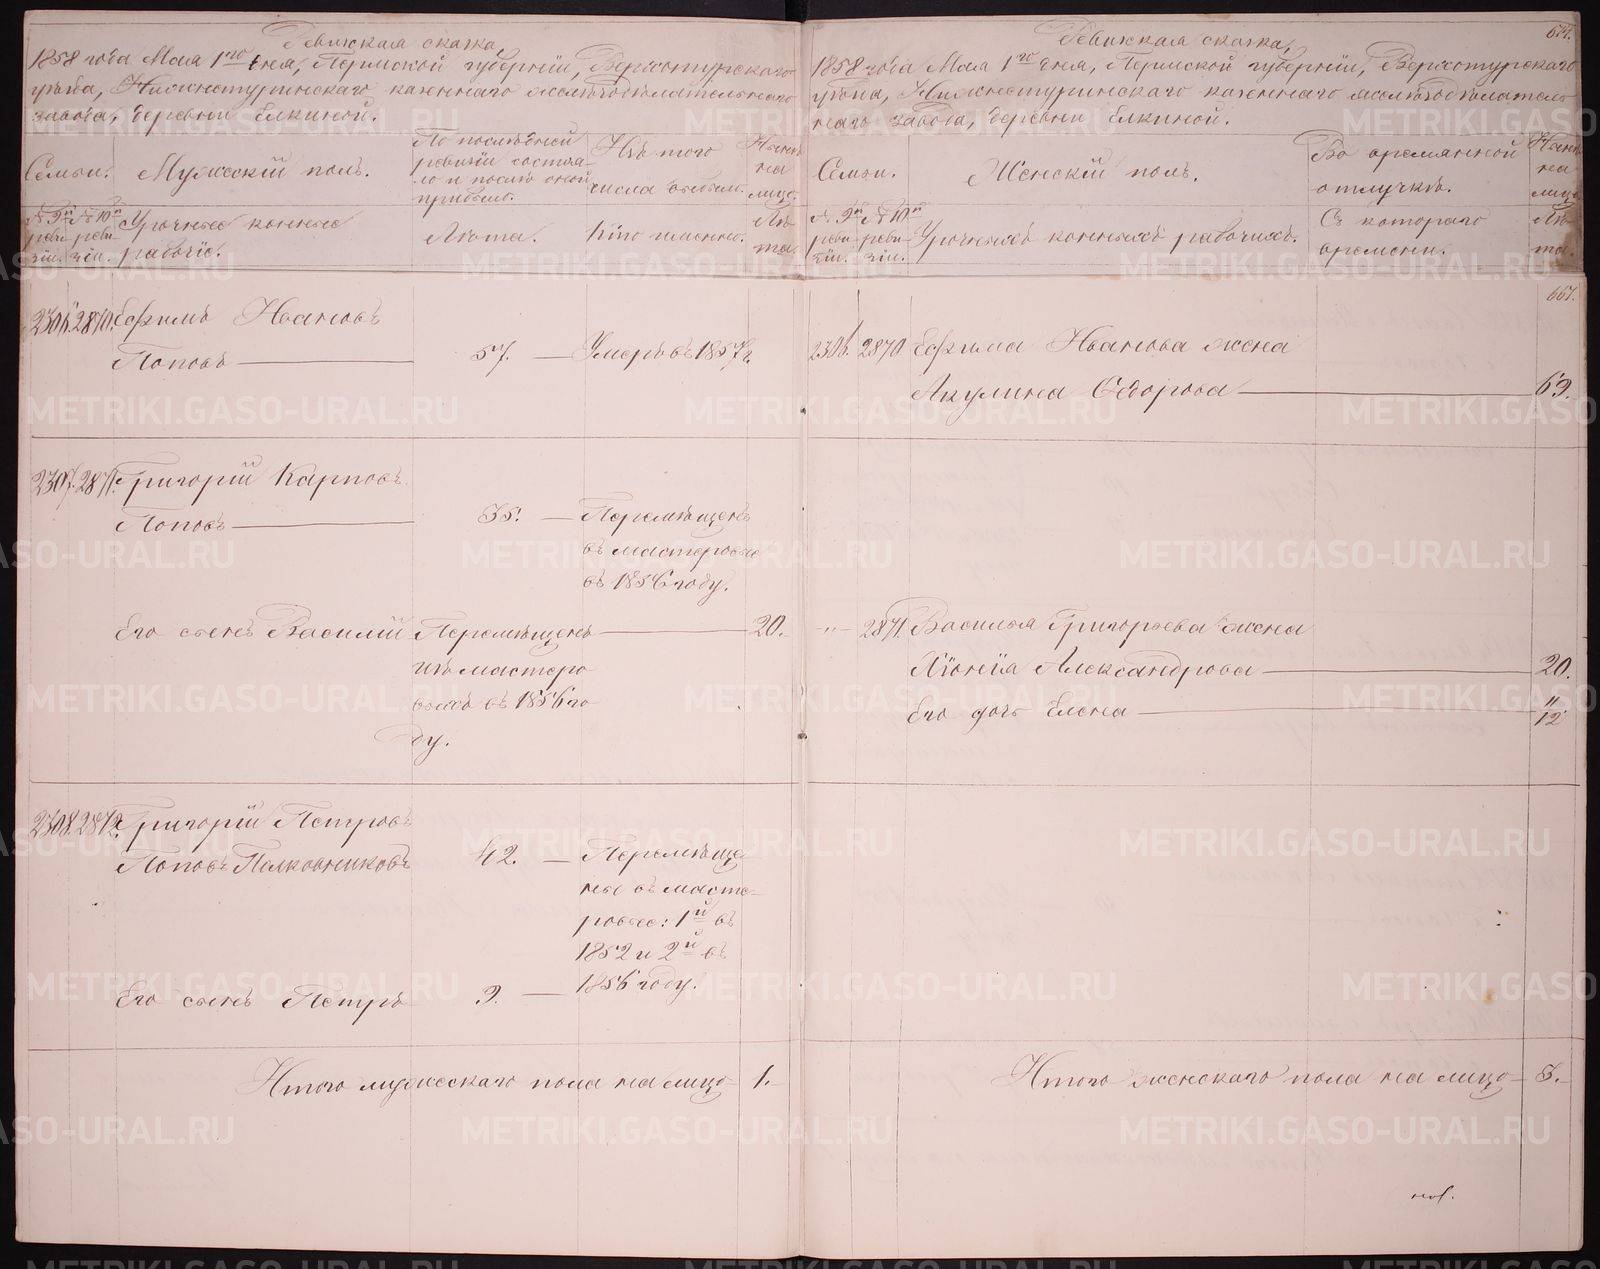 Ревижская сказка,
1858 года Мая 1го дня, Пермской губерніи, Верхотурскаго
уѣзда, Нижнетуринскаго казеннаго желѣзодѣлательнаго
завода, деревни Елкиной.
Семьи.
Мужескій полъ.
По послѣдней
ревизіи состоя-
ло и послѣ оной
прибыло.
Изъ того
числа выбыло.
Нынѣ
на
лицо
№ 9й
реви-
зіи.
№ 10й
реви-
зіи.
Урочные конные
рабочіе.
Лѣта.
Кто именно.
Лѣ
та.
2306. 2870. Ефимъ Ивановъ
Поповъ
57.
Умеръ въ 1857 г.
2307. 2871. Григорій Карповъ
Поповъ
35.
Перемѣщенъ
въ мастеровые
въ 1856 году.
Его сынъ Василій
Перемѣщенъ
изъ мастеро
выхъ въ 1856 го
ду.
20.
2308. 2872. Григорій Петровъ
Поповъ Полковниковъ
42.
Перемѣще
ны въ масте-
ровые: 1й въ
1852 и 2й въ
1856 году.
Его сынъ Петръ
9.
Итого мужескаго пола на лицо
1.
Ревижская сказка,
1858 года Мая 1го дня, Пермской губерніи, Верхотурскаго
уѣзда, Нижнетуринскаго казеннаго желѣзодѣлатель
наго завода, деревни Елкиной.
Семьи.
Женскій полъ.
Во временной
отлучкѣ.
Нынѣ
на
лицо
№ 9й
реви-
зіи.
№ 10й
реви-
зіи.
Урочныхъ конныхъ рабочихъ.
Съ котораго
времени.
Лѣ
та.
667.
2306. 2870. Ефима Иванова жена
Акулина Ѳедорова
69.
" 2871. Василья Григорьева жена
Хіонія Александрова
20.
Его дочь Елена
"/12
Итого женскаго пола на лицо
3.
METRIKI.GASO-URAL.RU